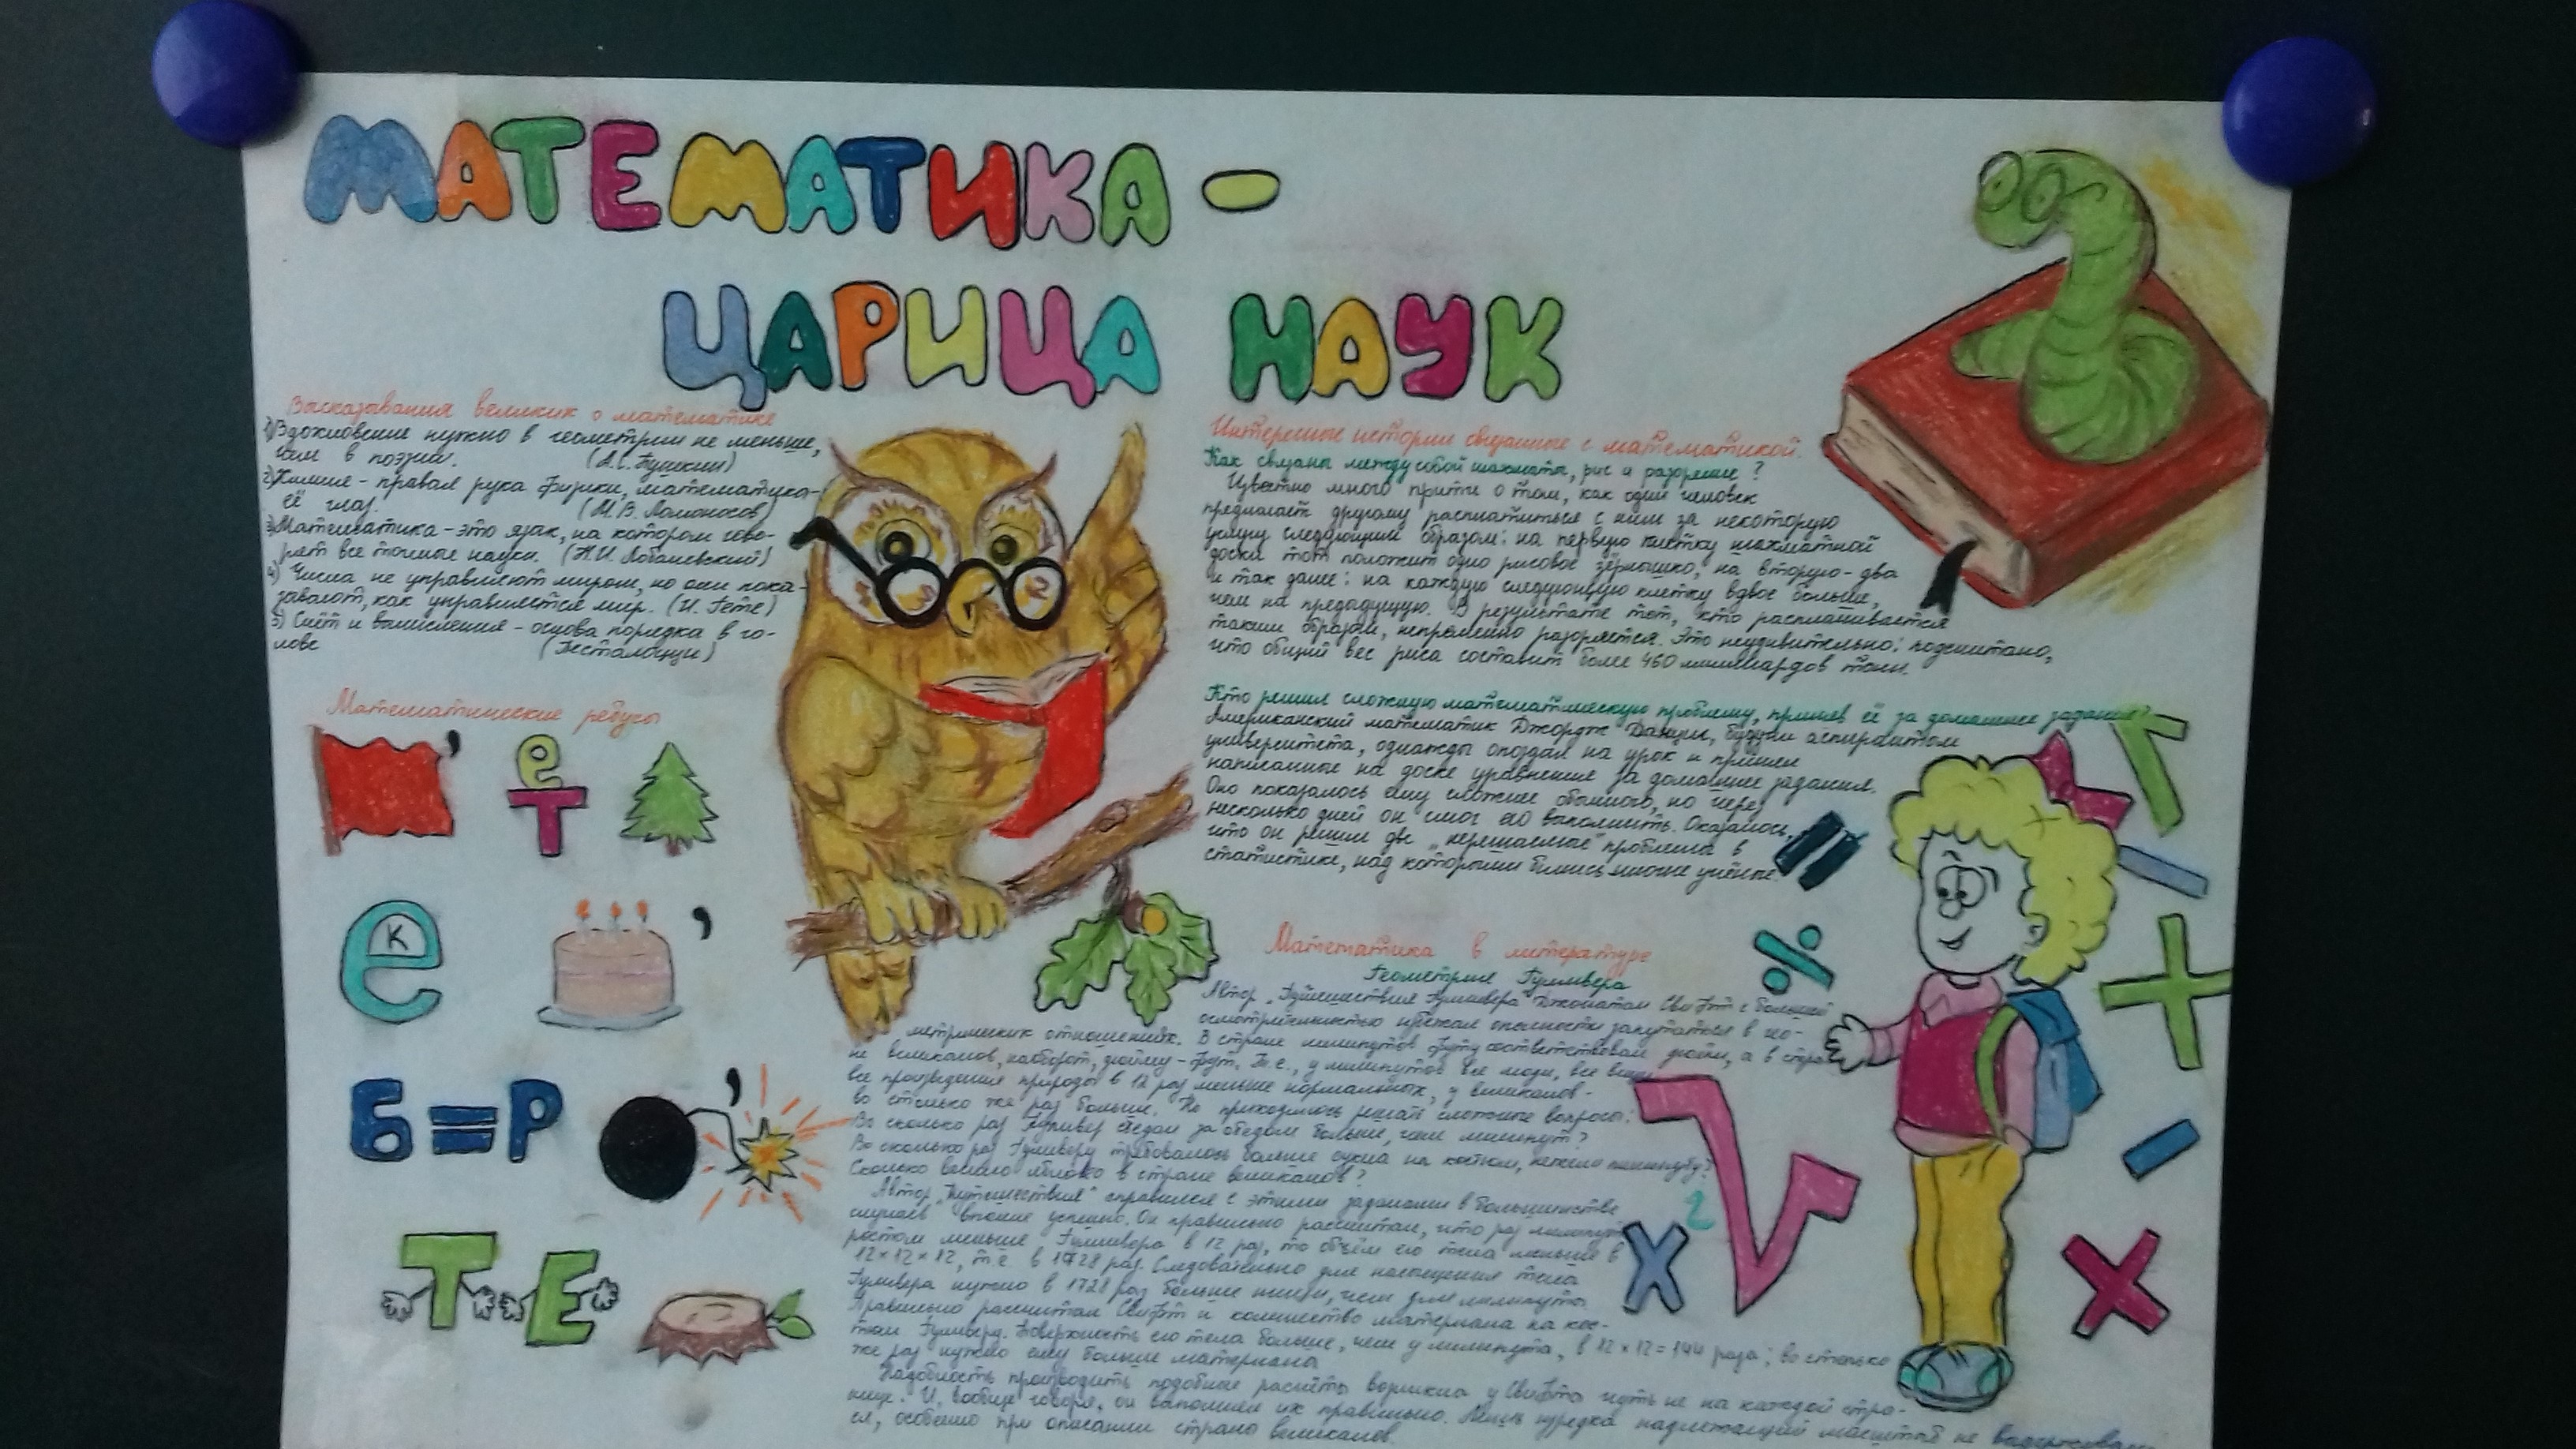 МАТЕМАТИКА -
ЦАРИЦА НАУК
Высказывания великих о математике
1) Вдохновение нужно в геометрии не меньше,
чем в поэзии. (А.С. Пушкин)
2) Химия - правая рука физики, математика-
её глаз. (М.В. Ломоносов)
3) Математика - это язык, на котором гово-
рят все точные науки. (Н.И. Лобачевский)
4) Числа не управляют миром, но они пока-
зывают, как управляется мир. (И. Гете)
5) Счёт и вычисления - основа порядка в го-
лове (Песталоцци)
Математические ребусы
'
е
Т
е
к
'
Б=Р
'
ТЕ
Интересные истории связанные с математикой.
Как связаны между собой шахматы, рис и разорение?
Известно много притч о том, как один человек
предлагает другому расплатиться с ним за некоторую
услугу следующим образом: на первую клетку шахматной
доски тот положит одно рисовое зёрнышко, на вторую - два
и так далее: на каждую следующую клетку вдвое больше,
чем на предыдущую. В результате тот, кто расплачивается
таким образом, непременно разоряется. Это неудивительно: подсчитано,
что общий вес риса составит более 460 миллиардов тонн.
Кто решил сложную математическую проблему, приняв её за домашнее задание?
Американский математик Джордж Данциг, будучи аспирантом
университета, однажды опоздал на урок и принял
написанные на доске уравнения за домашнее задание.
Оно показалось ему сложнее обычного, но через
несколько дней он смог его выполнить. Оказалось,
что он решил две „нерешаемые" проблемы в
статистике, над которыми бились многие учёные.
Математика в литературе
Геометрия Гулливера
Автор „Путешествия Гулливера" Джонатан Свифт с большой
осмотрительностью избежал опасности запутаться в гео-
метрических отношениях. В стране лилипутов футу соответствовал дюйм, а в стра-
не великанов, наоборот, дюйму - фут. Т.е., у лилипутов все люди, все вещи,
все произведения природы в 12 раз меньше нормальных, у великанов -
во столько же раз больше. Но приходилось решать сложные вопросы:
Во сколько раз Гулливер съедал за обедом больше, чем лилипут?
Во сколько раз Гулливеру требовалось больше сукна на костюм, нежели лилипуту?
Сколько весило яблоко в стране великанов?
Автор „Путешествия" справился с этими задачами в большинстве
случаев вполне успешно. Он правильно рассчитал, что раз лилипут
ростом меньше Гулливера в 12 раз, то объём его тела меньше в
12×12×12, т.е. в 1728 раз. Следовательно для насыщения тела
Гулливера нужно в 1728 раз больше пищи, чем для лилипута.
Правильно рассчитал Свифт и количество материала на кос-
тюм Гулливеру. Поверхность его тела больше, чем у лилипута, в 12×12=144 раза; во столько
же раз нужно ему больше материала
Надобность производить подобные расчёты возникла у Свифта чуть не на каждой стра-
нице. И, вообще говоря, он выполнял их правильно. Лишь изредка надлежащий масштаб не
ся, особенно при описании страны великанов.
=
÷
+
-
×
√
x
2